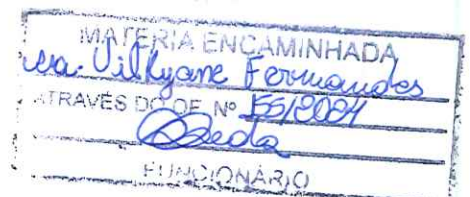 MATERIA ENCAMINHADA
sra. Vilkyane Fernandes
ATRAVÉS DO OF. Nº 55/2024
FUNCIONÁRIO